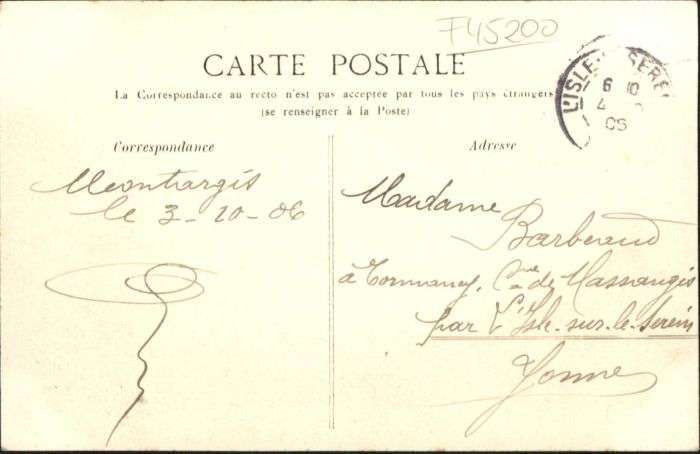 F45200
CARTE POSTALE
La Correspondance au recto n'est pas acceptée par tous les pays étrangers
(se renseigner à la Poste)
Correspondance
Montargis
le 3-10-06
Adresse
L'ISLE SEREIN
6 10
4
06
Madame
Barberaud
à Tormancy, Cne de Massangis
par L'Isle-sur-le-Serein
Yonne